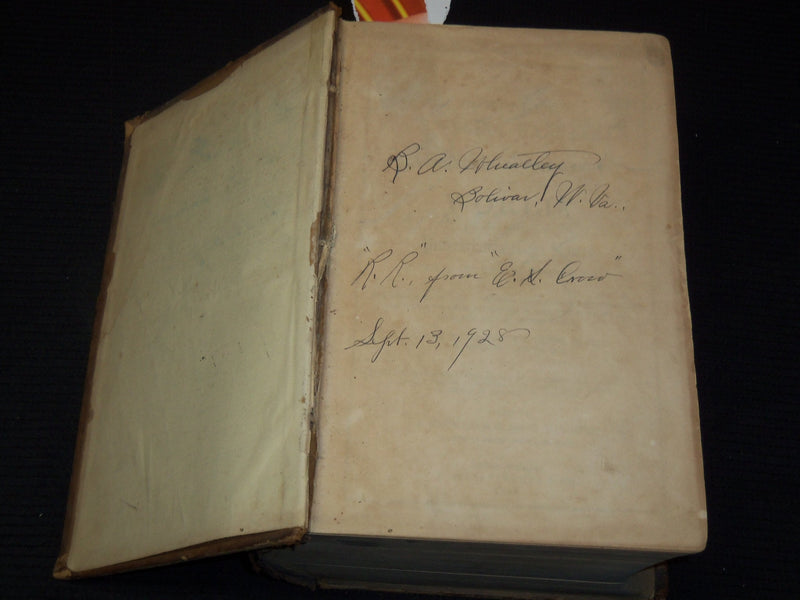 B. A. Wheatley
Bolivar, W. Va..
"R. R.", from "E. S. Crow"
Sept. 13, 1928